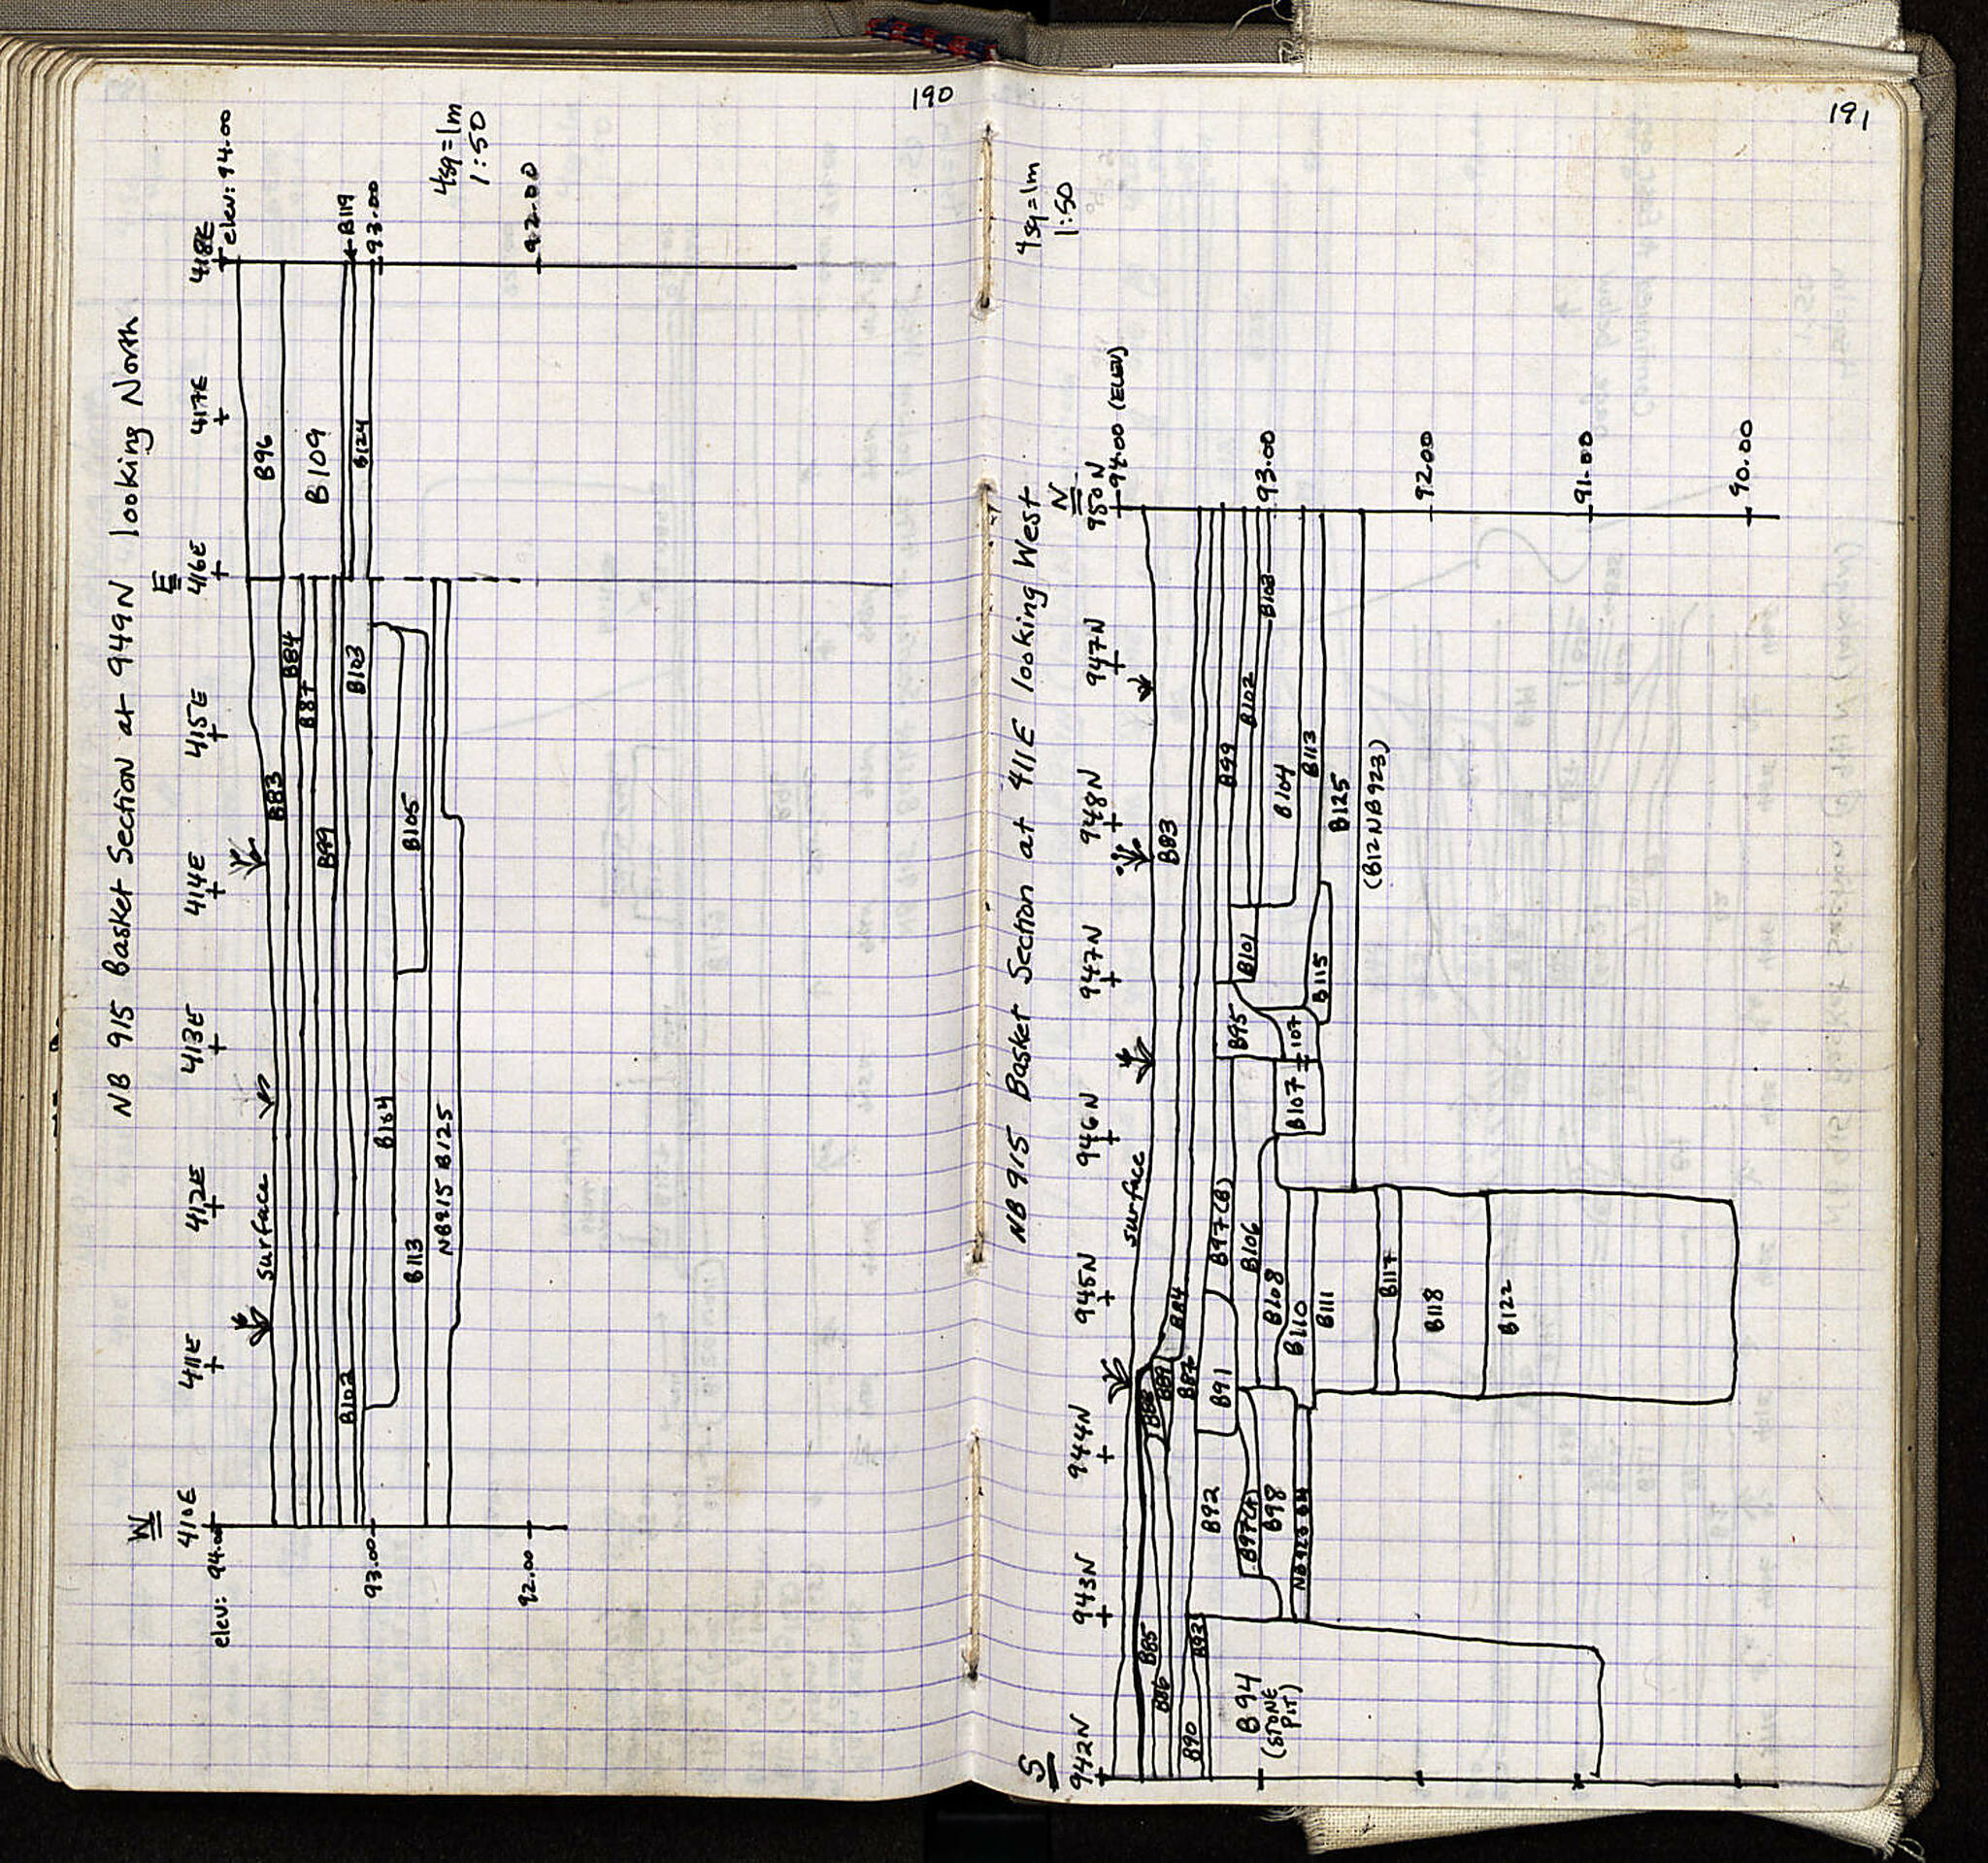 190
NB 915 Basket Section at 949N looking North
W
E
410E
411E
412E
413E
414E
415E
416E
417E
418E
elev: 94.00
elev: 94.00
4sq=1m
1:50
surface
B83
B84
B87
B99
B96
B109
B119
B124
B102
B103
B104
B105
B113
NB915 B125
93.00
93.00
92.00
92.00
191
NB 915 Basket Section at 411E looking West
4sq=1m
1:50
S
N
942N
943N
944N
945N
946N
947N
948N
947N
950N
94.00 (ELEV)
surface
B83
B84
B85
B86
B88
B89
B87
B90
B91
B92
B93
B94
(STONE
PIT)
B95
B97(A)
B97(B)
B98
B99
B101
B102
B103
B104
B106
B107
107
B108
B110
B111
B113
B115
B117
B118
B122
B125
(B12NB923)
93.00
92.00
91.00
90.00